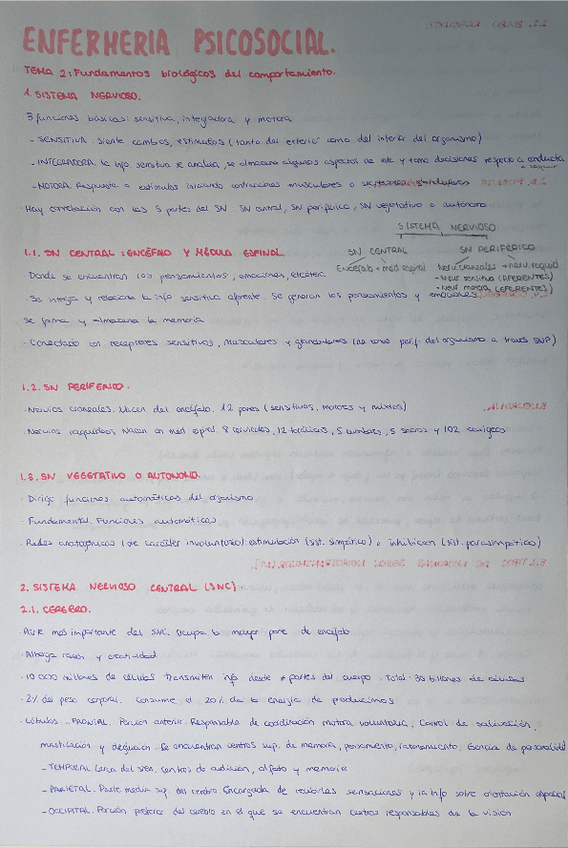 ENFERMERIA PSICOSOCIAL.
TEMA 2: Fundamentos biológicos del comportamiento.
1. SISTEMA NERVIOSO.
3 funciones básicas: sensitiva, integradora y motora
- SENSITIVA. Siente cambios, estímulos (tanto del exterior como del interior del organismo)
- INTEGRADORA. La info. sensitiva se analiza, se almacena algunos aspectos de esta y toma decisiones respecto a conducta
- MOTORA. Respuesta a estímulos iniciando contracciones musculares o
· Hay correlación con las 3 partes del SN: SN central, SN periférico, SN vegetativo o autónomo
SISTEMA NERVIOSO
SN CENTRAL SN PERIFÉRICO
Encéfalo + med espinal Nerv. craneales + nerv. raquid
- Neur sensitiva (AFERENTES)
- Neur motora (EFERENTES)
1.1. SN CENTRAL: ENCÉFALO Y MÉDULA ESPINAL.
Donde se encuentran los pensamientos, emociones, etcétera.
· Se integra y relaciona la info sensitiva aferente. Se generan los pensamientos y emociones.
Se forma y almacena la memoria
· Conectado con receptores sensitivos, musculares y glandulares (de zonas perif. del organismo a través SNP)
1.2. SN PERIFÉRICO.
· Nervios craneales. Nacen del encéfalo. 12 pares (sensitivos, motores y mixtos)
· Nervios raquídeos. Nacen en med espinal. 8 cervicales, 12 torácicas, 5 lumbares, 5 sacros y 102 coxígeos
1.3. SN VEGETATIVO O AUTONOMO.
· Dirige funciones automáticas del organismo
· Fundamental. Funciones automáticas
· Redes antagónicas (de carácter involuntario): estimulación (sist. simpático) e inhibición (sist. parasimpático)
2. SISTEMA NERVIOSO CENTRAL (SNC)
2.1. CEREBRO.
· Parte más importante del SNC. Ocupa la mayor parte de encéfalo
· Alberga razón y creatividad
· 10 000 millones de células transmiten info desde ≠ partes del cuerpo. Total: 30 billones de células
· 2% del peso corporal. Consume el 20% de la energía que producimos
· Lóbulos: - FRONTAL. Porción anterior. Responsable de coordinación motora voluntaria. Control de salivación,
masticación y deglución. Se encuentran centros sup. de memoria, pensamiento, razonamiento, esencia de personalidad
- TEMPORAL. Cerca del sien, centros de audición, olfato y memoria
- PARIETAL. Parte media sup del cerebro. Encargada de recibir las sensaciones y la info sobre orientación espacial
- OCCIPITAL. Porción posterior del cerebro en el que se encuentran centros responsables de la visión